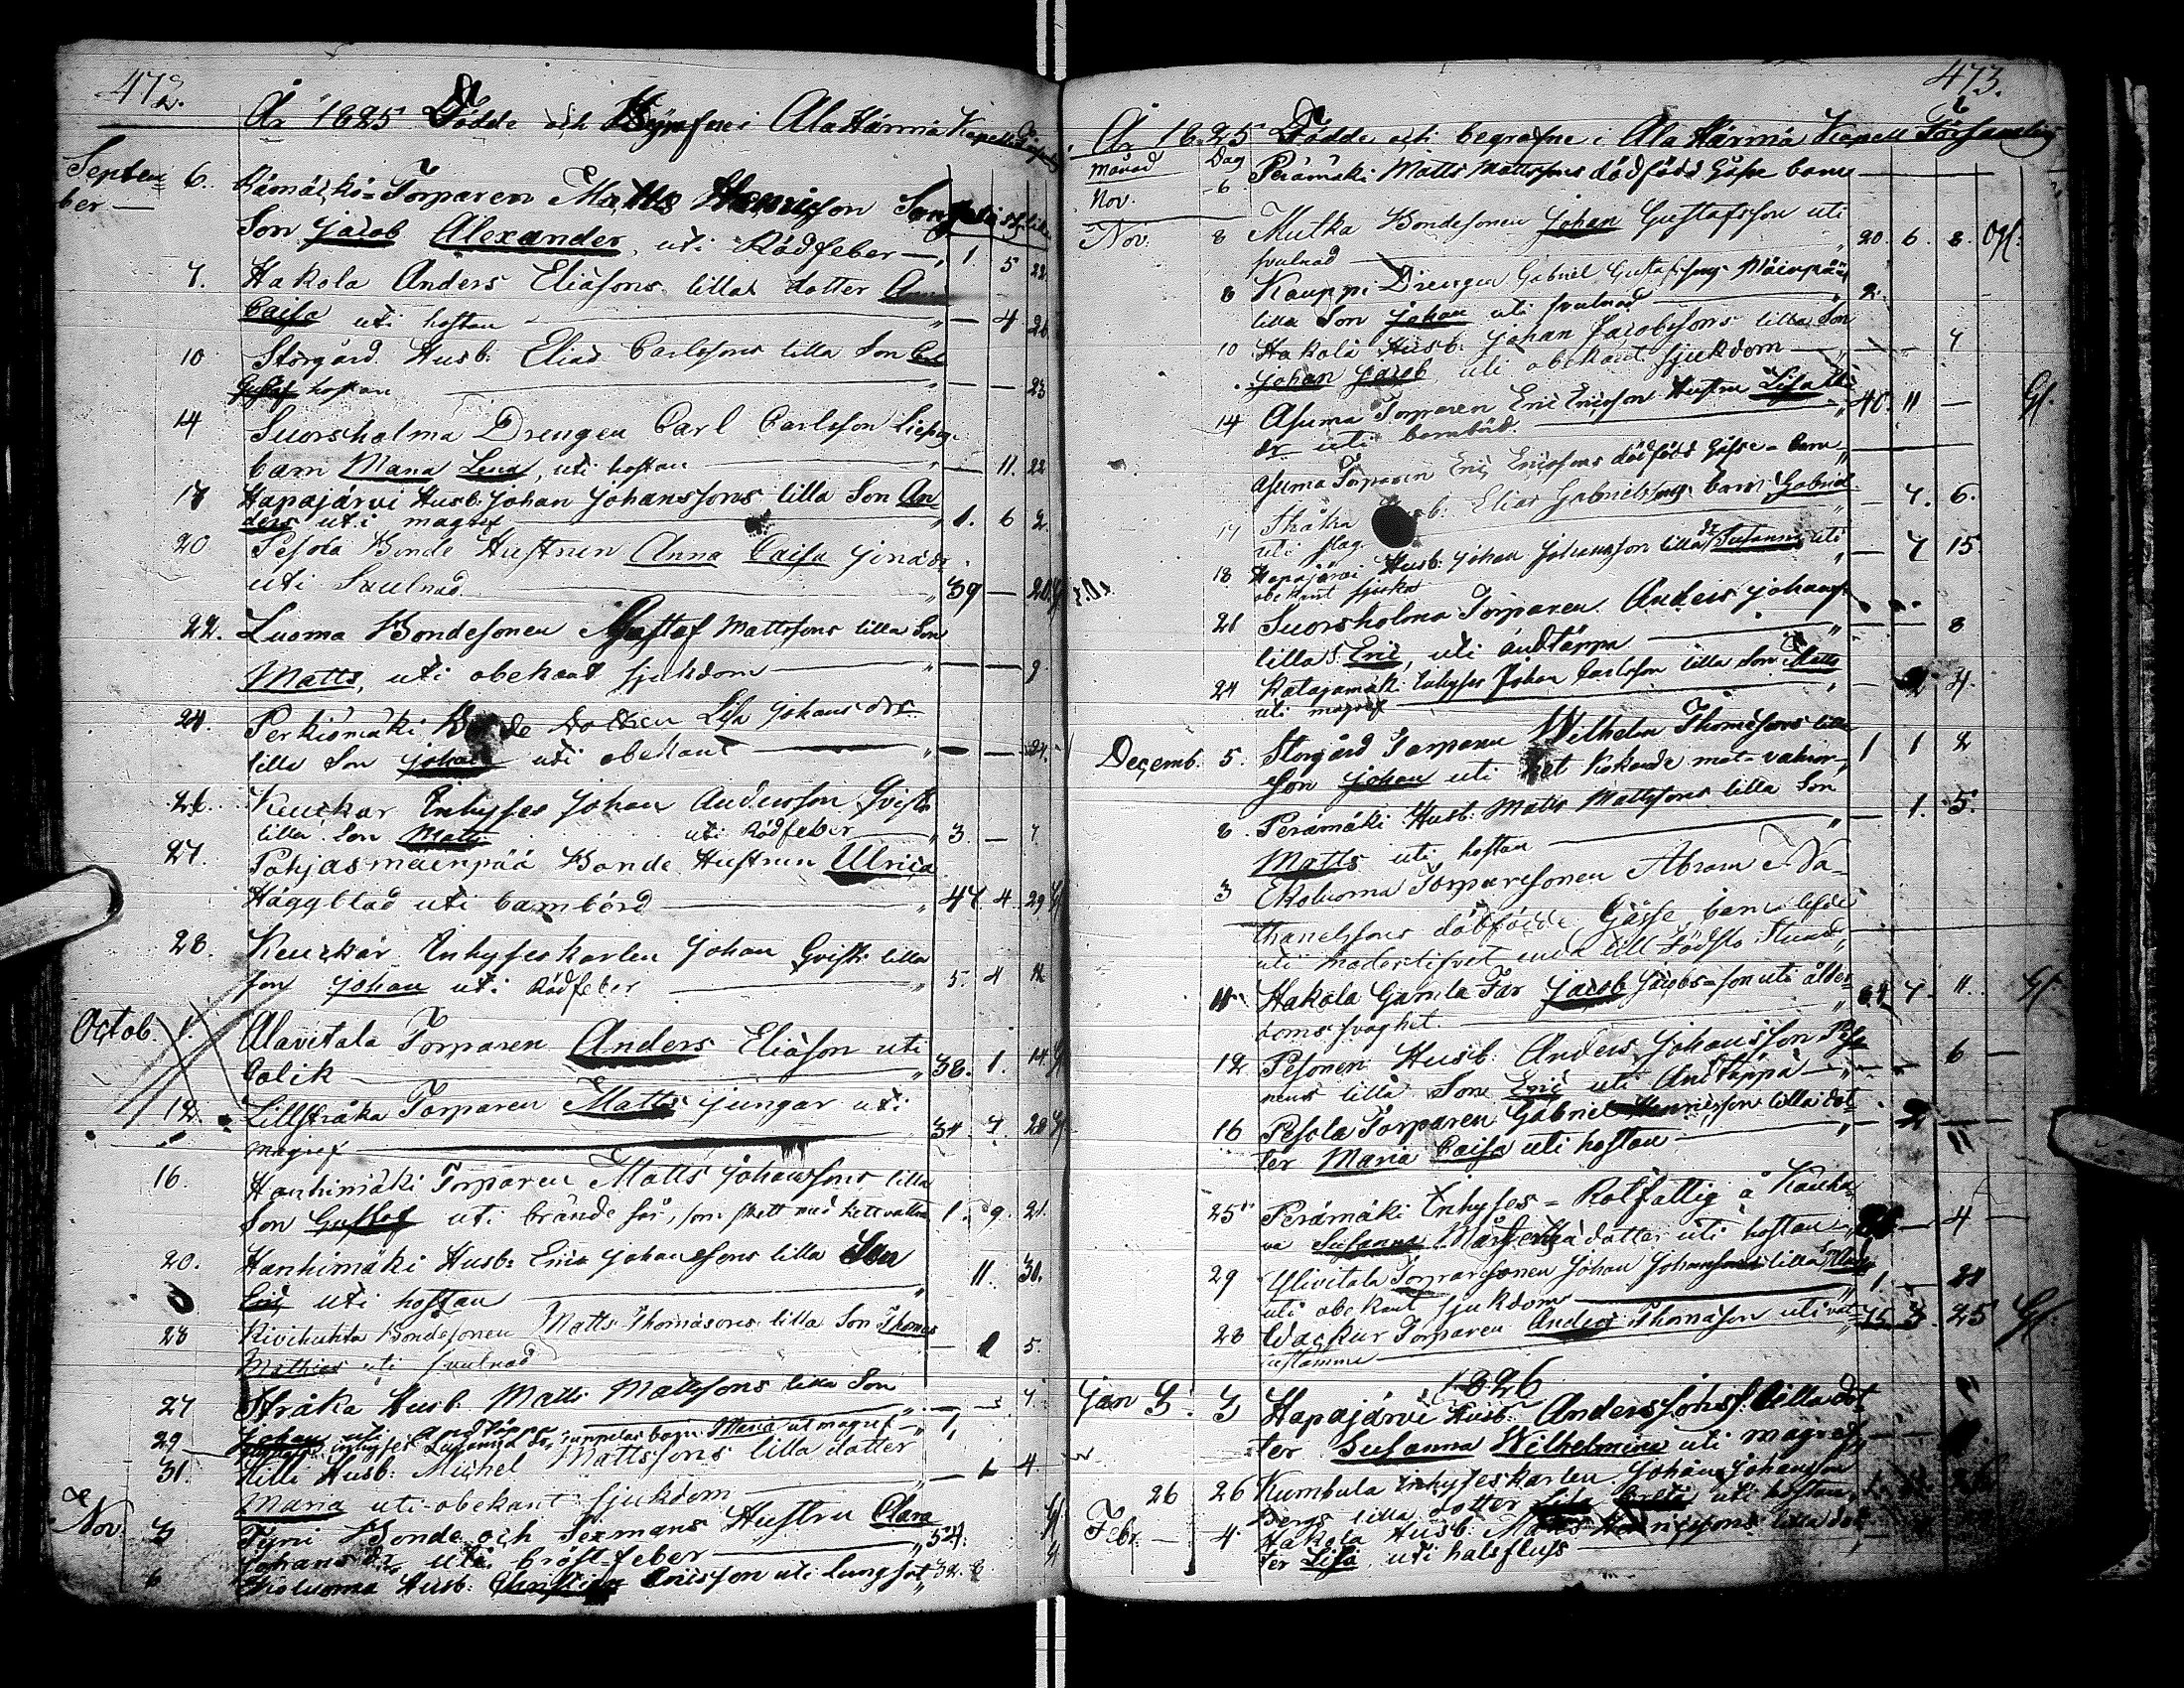 472.
År 1825 Dödde och Begrafne i Ala Härmä Kapell
Septem=
ber —
6. Rämäkö=Torparen Matts Henricson
Son Jacob Alexander, uti Rödfeber — 1. 5 22
7. Hakola Anders Eliasons lilla dotter Anna
Caisa uti hostan — 4 26
10 Storgård Husb: Elias Carlssons lilla Son Carl
Gustaf hostan — — 23
14 Suorsholma Drengen Carl Carlsson
barn Maria Lena, uti hostan — 11. 22
17 Hapajärvi Husb. Johan Johanssons lilla Son An=
ders uti magref 1. 6 2.
20 Pesola Bonde Hustrun Anna Caisa
uti Svulnad 39 — 20.
22. Luoma Bondesonen Gustaf Mattssons lilla Son
Matts, uti obekant sjukdom — — 9.
24. Perkiömäki Bonde Dottren Lisa Johansdrs
lilla Son Johan uti obekant — — 24.
26. Keuckar Inhyses Johan Andersson Qvist
lilla Son Matts uti Rödfeber 3. — 7.
27. Pohjasmäenpää Bonde Hustrun Ulrica
Häggblad uti barnbörd 47 4. 29
28. Keuckar Inhyseskarlen Johan Qvists lilla
son Johan uti Rödfeber 5. 4 12
Octob. 1. Alavitala Torparen Anders Eliason uti
Colik 38. 1. 14.
12. Lillstråka Torparen Matts Ljungar uti
magref 34. 7. 28
16. Hanhimäki Torparen Matts Johanssons lilla
Son Gustaf uti brände sår, som skett med hett vatten 1. 9. 21.
20. Hanhimäki Husb: Eric Johanssons lilla Son
Eric uti hostan 11. 30.
23 Kivihuhta Bondesonen Matts Thomasons lilla Son Thomas
Mathias uti svulnad — 1 5.
27 Stråka Husb. Matts Mattssons lilla Son — — 7
Johan uti andtäppa
29 Inhyses Susanna barn Maria uti magref 1,
31. Hilli Husb: Michel Mattssons lilla dotter
Maria uti obekant sjukdom — 1 4.
Nov. 3 Tyni Bonde och Sexmans Hustru Clara
Johansdr uti bröst=feber 54.
6 Ekoluoma Husb: Christian Ericsson uti lungsot 32. 8
473.
År 1825 Dödde och begrafne i Ala Härmä Kapell Församling
Månad Dag
Nov. 6. Perämäki Matts Mattssons dödfödd Gåsse barn
Nov. 8 Mutka Bondesonen Johan Gustafsson uti
svulnad 20. 6. 8.
8 Kauppi Drengen Gabriel Gustafssons
lilla Son Johan uti svulnad 2.
10 Hakola Husb. Johan Jacobssons lilla Son
Johan Jacob, uti obekant sjukdom — — 7
14 Asuma Torparen Eric Ericsson Hustru Lisa
dr uti barnbörd. 40. 11 —
Asuma Torparen Eric Ericssons dödfödd Gåsse=barn
17 Stråka Husb: Elias Gabrielssons barn Gabriel
uti slag. — 7. 6.
18 Hapajärvi Husb: Johan Johansson lilla dr Susanna uti
obekant sjukd — 7 15
21 Suorsholma Torparen Anders Johanss
lilla S. Eric, uti andtäppa — — 8
24 Katajamäki Inhyses Johan Carlsson lilla Son Matts
uti magref — 2 4.
Decemb. 5. Storgård Torparen Wilhelm Thomassons lilla
Son Johan uti het kokande mat=vatn 1 1 2
8. Perämäki Husb: Matts Mattssons lilla Son
Matts uti hostan — 1. 5.
3 Ekoluoma Torparesonen Abram Na=
thanelssons dödfödde Gåsse barn lefde
uti moderlifvet ända till Födslo Stund
11. Hakola Gamla Far Jacob Jacobs=son uti ålder=
doms svaghet. 84 7. 11.
12 Pesonen Husb. Anders Johansson
nens lilla Son Eric uti Andtäppa — — 6
16 Pesola Torparen Gabriel Henricssons lilla dot=
ter Maria Caisa uti hostan — 2 11
25 Perämäki Inhyses=Rotfattig å Kauha=
va Susanna Mårtens dotter uti hostan — 4 —
29 Ylivitala Torparesonen Johan Johanssons lilla S. Matts
uti obekant sjukdom 1 — 21
28 Wackur Torparen Anders Thomason uti vat=
75 3. 25
1826
Jan 3. 3 Hapajärvi Husb: Anderssons lilla dot=
ter Susanna Wilhelmina uti magref — —
26 26 Kumbula Inhyseskarlen Johan Johansson
bergs lilla dotter Lisa Greta uti hostan
Febr. — 4. Hakola Husb. Matts Henricssons lilla dot=
ter Lisa, uti halsfluss